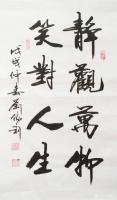 靜觀萬物
笑對人生
戊戌仲春